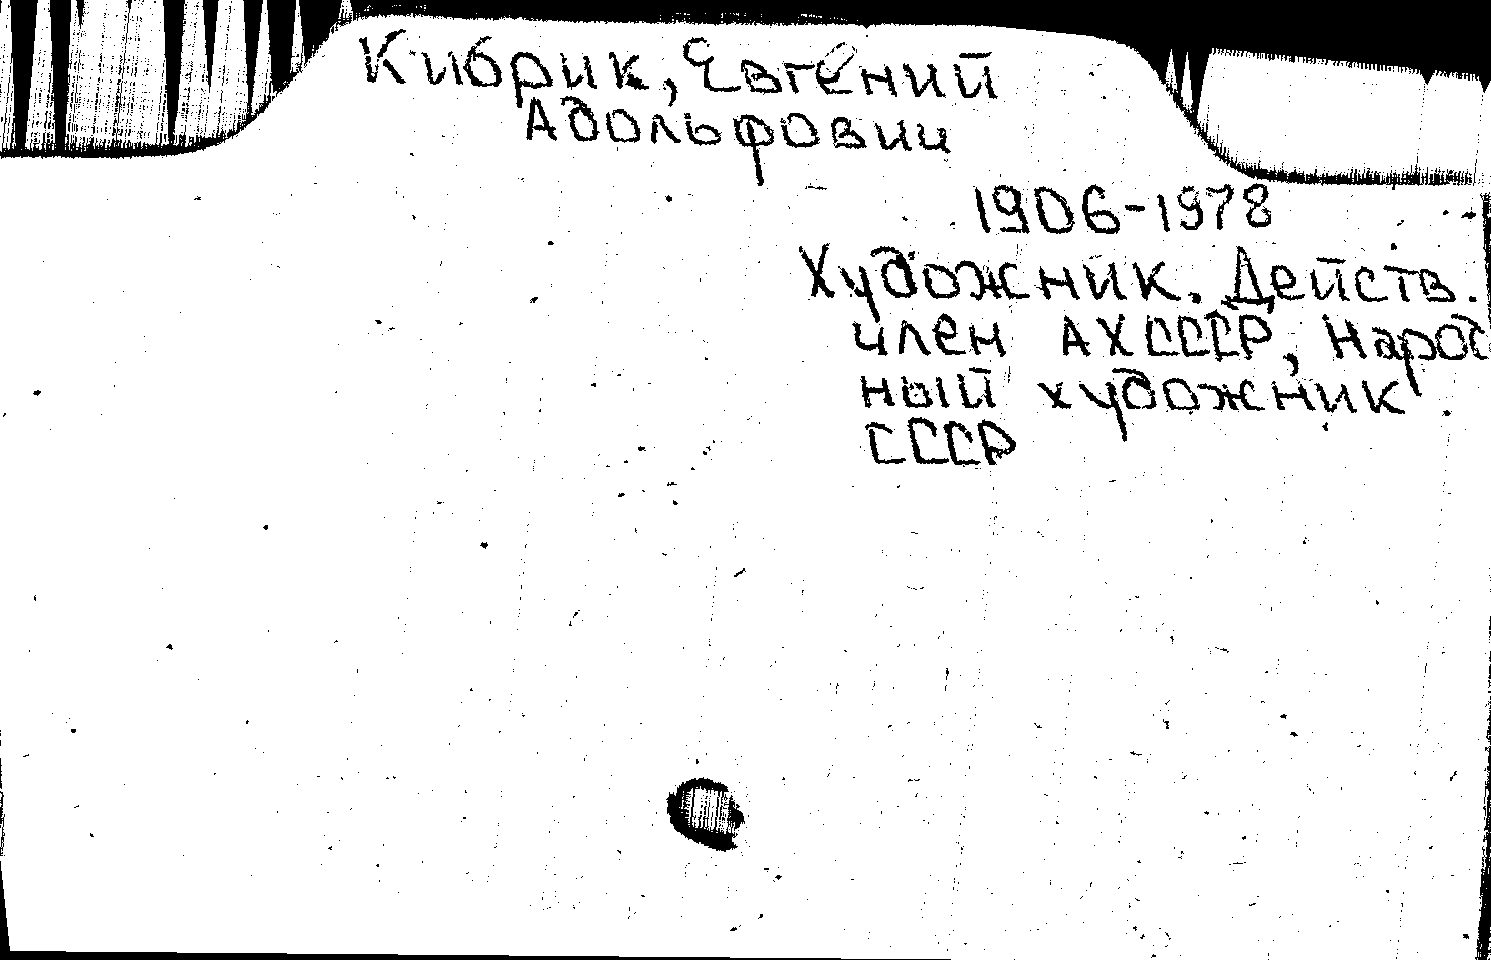 Кибрик, Евгений
Адольфович
1906-1978
Художник. Действ.
член АХ СССР, Народ
ный художник
СССР